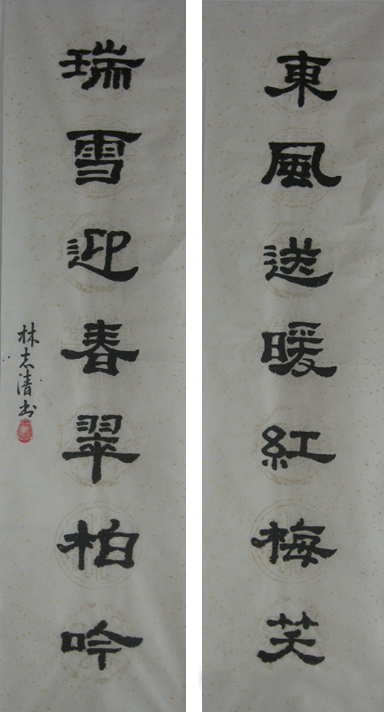 東風送暖紅梅笑
瑞雪迎春翠柏吟
林志清书